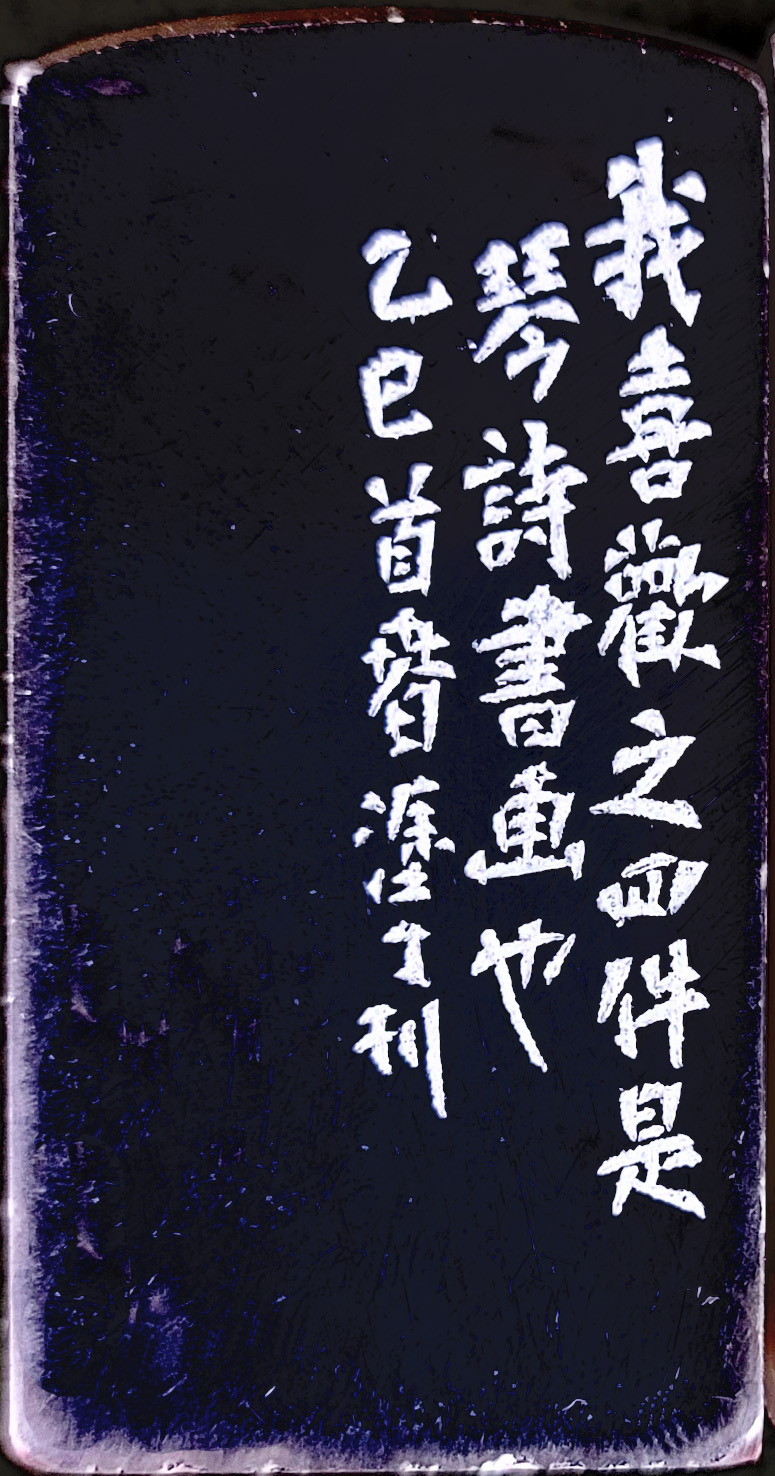 我喜歡之四件是
琴詩書画也
乙巳首春刊